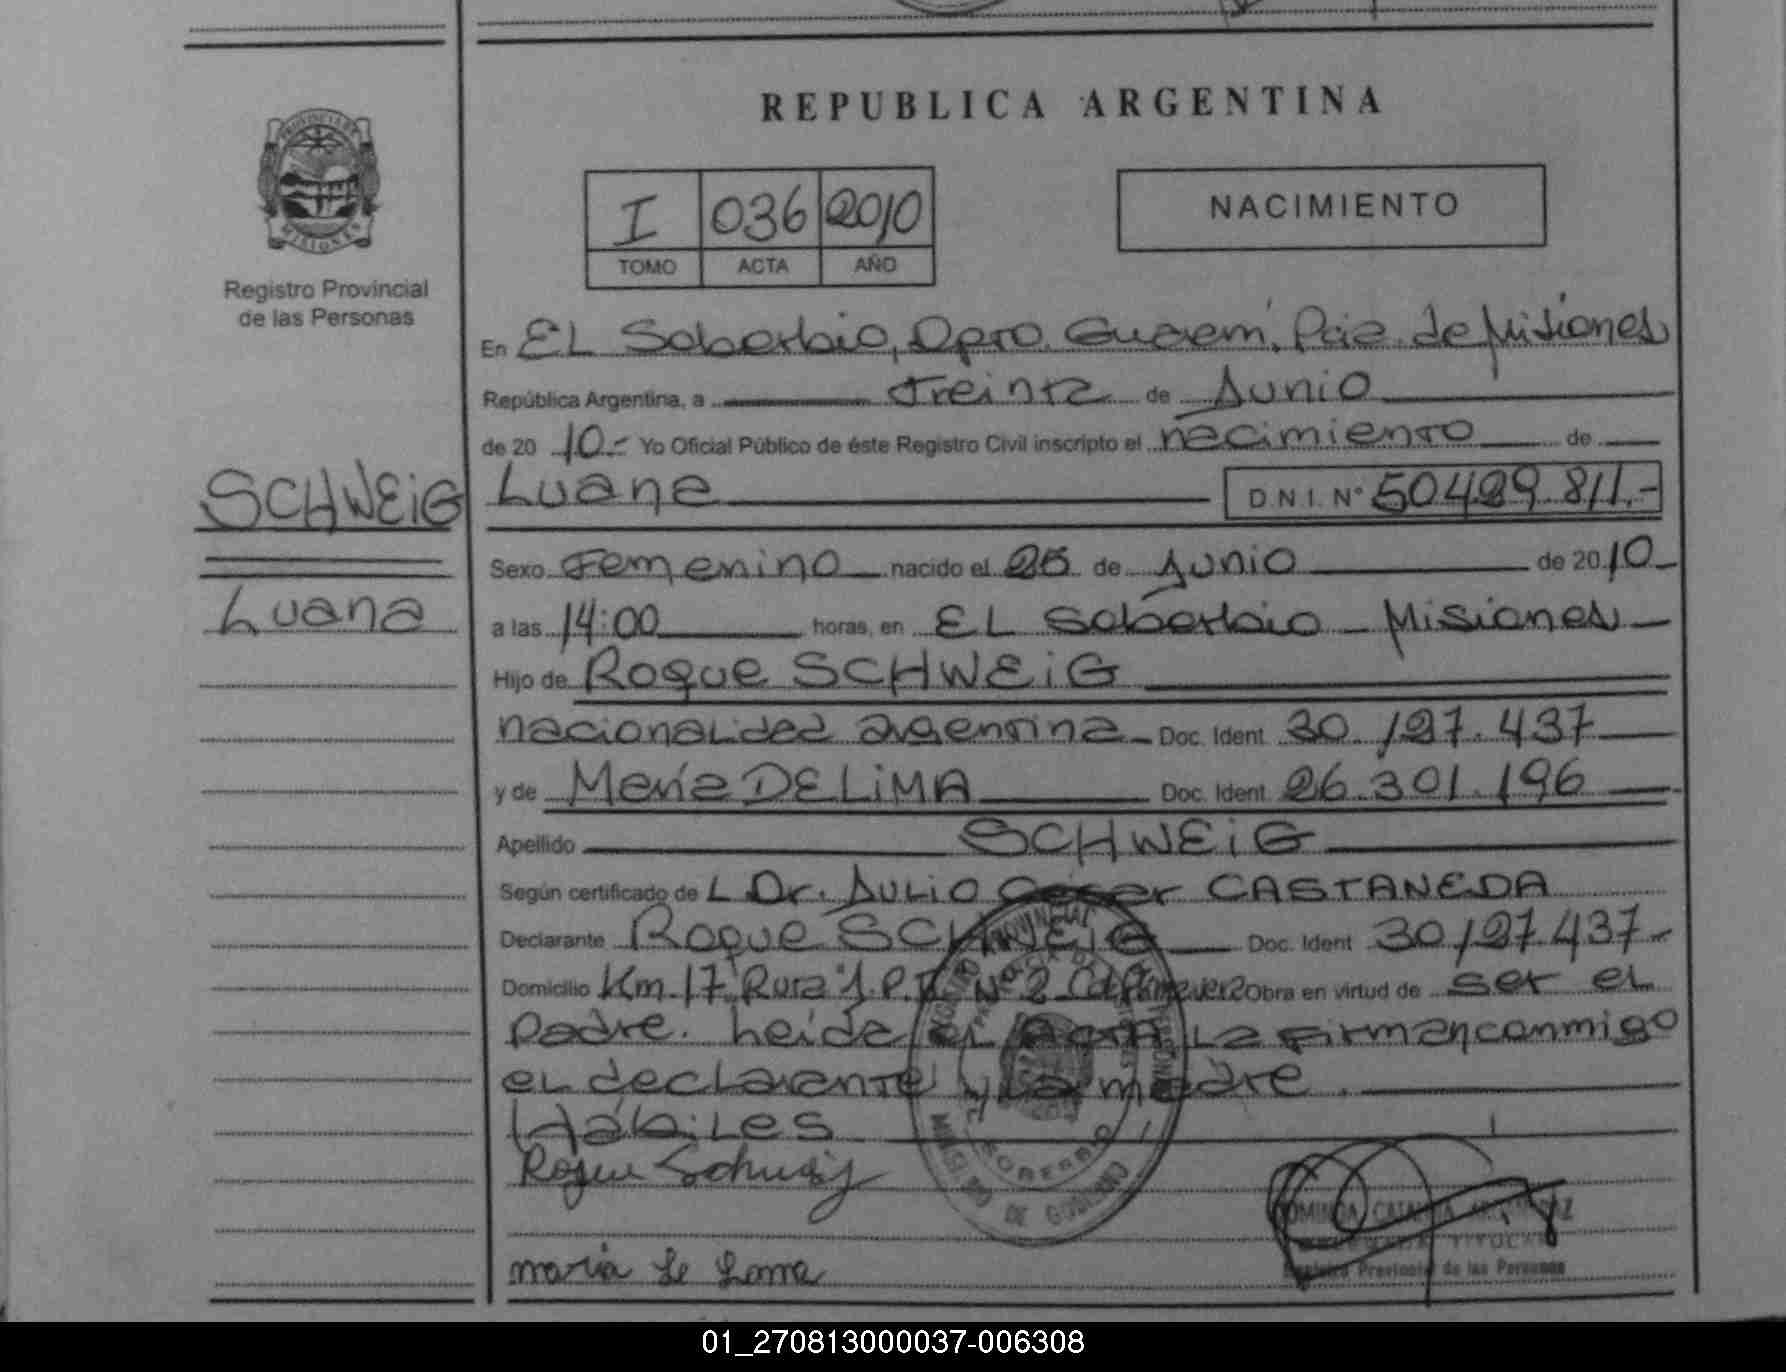 REPUBLICA ARGENTINA
PROVINCIA DE
MISIONES
Registro Provincial
de las Personas
I 036 2010
TOMO ACTA AÑO
NACIMIENTO
En EL Soberbio, Dpto. Guaraní, Pcia. de Misiones
República Argentina, a treinta de Junio
de 20 10.- Yo Oficial Público de éste Registro Civil inscripto el nacimiento de
SCHWEiG
Luana D.N.I. Nº 50429.811.-
Sexo Femenino nacido el 25 de Junio de 20 10
Luana
a las 14:00 horas, en EL Soberbio - Misiones
Hijo de Roque SCHWEiG
nacionalidad argentina Doc. Ident. 30.127.437
y de María DE LiMA Doc. Ident. 26.301.196
Apellido SCHWEiG
Según certificado de L Dr. Julio Cesar CASTANEDA
Declarante Roque SCHWEiG Doc. Ident 30127.437-
Domicilio Km 17 Ruta 1.P. Nº 2 Obra en virtud de ser el
padre. Leida el Acta La Firman conmigo
el declarante y La madre.
Hábiles
Roque Schweig
maria de Lima
Registro Provincial de las Personas
MINISTERIO DE GOBIERNO
SOBERBIO
01_270813000037-006308